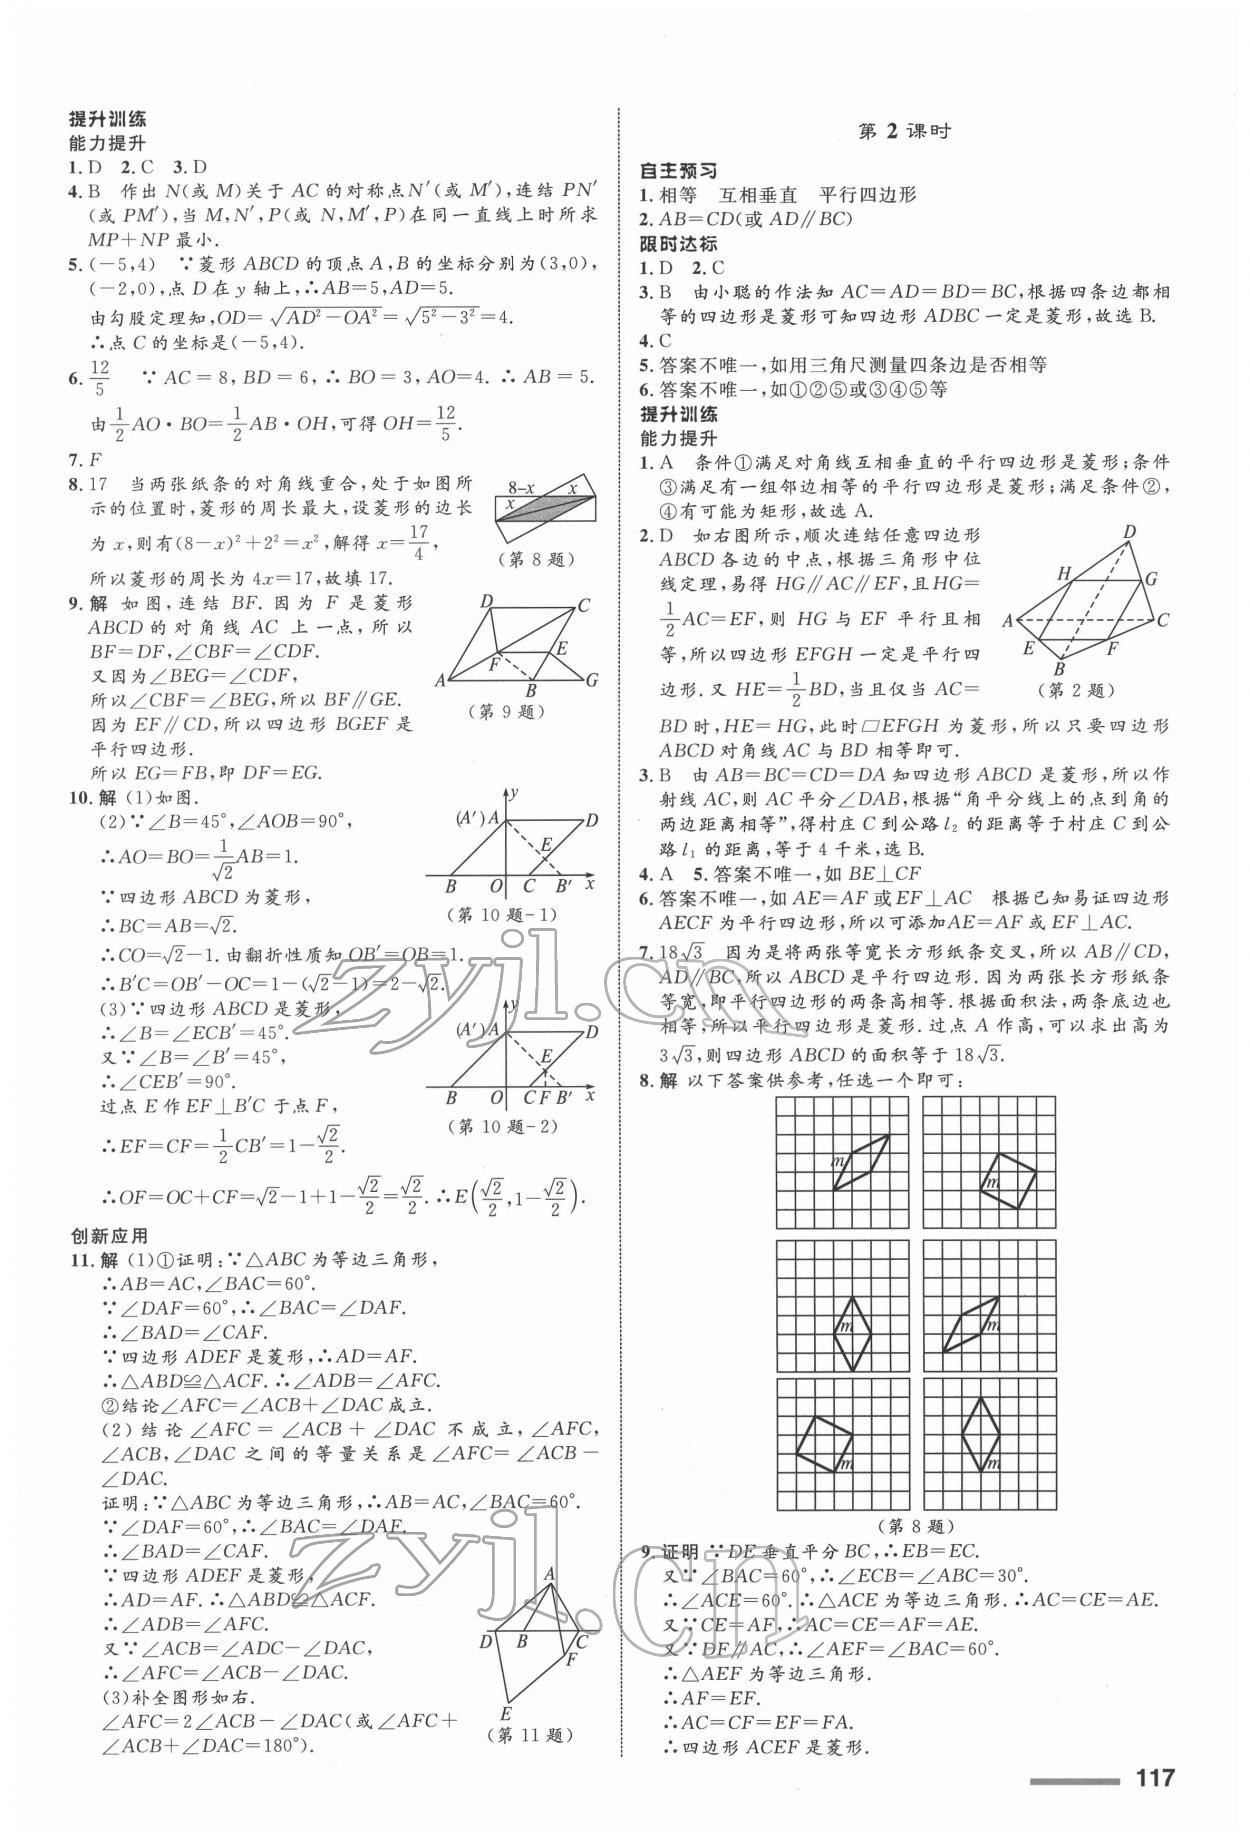 提升训练
能力提升
1. D 2. C 3. D
4. B 作出 N(或 M)关于 AC 的对称点N′(或 M′),连结 PN′
(或 PM′),当 M,N′,P(或 N,M′,P)在同一直线上时所求
MP+NP 最小.
5. (-5,4) ∵菱形 ABCD 的顶点 A,B 的坐标分别为(3,0),
(-2,0),点 D 在 y 轴上,∴AB=5,AD=5.
由勾股定理知,OD=√(AD²-OA²)=√(5²-3²)=4.
∴点 C 的坐标是(-5,4).
6. 12/5 ∵AC=8,BD=6,∴BO=3,AO=4.∴AB=5.
由1/2AO·BO=1/2AB·OH,可得OH=12/5.
7. F
8. 17 当两张纸条的对角线重合,处于如图所
示的位置时,菱形的周长最大,设菱形的边长
为 x,则有(8-x)²+2²=x²,解得 x=17/4,
所以菱形的周长为 4x=17,故填 17.
8-x x
x
(第 8 题)
9. 解 如图,连结 BF. 因为 F 是菱形
ABCD 的对角线 AC 上一点,所以
BF=DF,∠CBF=∠CDF.
又因为∠BEG=∠CDF,
所以∠CBF=∠BEG,所以 BF∥GE.
因为 EF∥CD,所以四边形 BGEF 是
平行四边形.
所以 EG=FB,即 DF=EG.
D C
F E
A B G
(第 9 题)
10. 解 (1)如图.
(2)∵∠B=45°,∠AOB=90°,
∴AO=BO=1/√2AB=1.
∵四边形 ABCD 为菱形,
∴BC=AB=√2.
∴CO=√2-1. 由翻折性质知 OB′=OB=1.
∴B′C=OB′-OC=1-(√2-1)=2-√2.
y
(A′)A D
E
B O C B′ x
(第 10 题-1)
(3)∵四边形 ABCD 是菱形,
∴∠B=∠ECB′=45°.
又∵∠B=∠B′=45°,
∴∠CEB′=90°.
过点 E 作 EF⊥B′C 于点 F,
∴EF=CF=1/2CB′=1-√2/2.
∴OF=OC+CF=√2-1+1-√2/2=√2/2.∴E(√2/2,1-√2/2).
y
(A′)A D
E
B O C F B′ x
(第 10 题-2)
创新应用
11. 解 (1)①证明:∵△ABC 为等边三角形,
∴AB=AC,∠BAC=60°.
∵∠DAF=60°,∴∠BAC=∠DAF.
∴∠BAD=∠CAF.
∵四边形 ADEF 是菱形,∴AD=AF.
∴△ABD≌△ACF.∴∠ADB=∠AFC.
②结论∠AFC=∠ACB+∠DAC成立.
(2)结论∠AFC=∠ACB+∠DAC 不成立,∠AFC,
∠ACB,∠DAC 之间的等量关系是∠AFC=∠ACB-
∠DAC.
证明:∵△ABC为等边三角形,∴AB=AC,∠BAC=60°.
∵∠DAF=60°,∴∠BAC=∠DAF.
∴∠BAD=∠CAF.
∵四边形 ADEF 是菱形,
∴AD=AF.∴△ABD≌△ACF.
∴∠ADB=∠AFC.
又∵∠ACB=∠ADC-∠DAC,
∴∠AFC=∠ACB-∠DAC.
(3)补全图形如右.
∠AFC=2∠ACB-∠DAC(或∠AFC+
∠ACB+∠DAC=180°).
A
D B C
F
E
(第 11 题)
第 2 课时
自主预习
1. 相等 互相垂直 平行四边形
2. AB=CD(或 AD∥BC)
限时达标
1. D 2. C
3. B 由小聪的作法知 AC=AD=BD=BC,根据四条边都相
等的四边形是菱形可知四边形 ADBC 一定是菱形,故选 B.
4. C
5. 答案不唯一,如用三角尺测量四条边是否相等
6. 答案不唯一,如①②⑤或③④⑤等
提升训练
能力提升
1. A 条件①满足对角线互相垂直的平行四边形是菱形;条件
③满足有一组邻边相等的平行四边形是菱形;满足条件②,
④有可能为矩形,故选 A.
2. D 如右图所示,顺次连结任意四边形
ABCD 各边的中点,根据三角形中位
线定理,易得 HG∥AC∥EF,且HG=
1/2AC=EF,则 HG 与 EF 平行且相
等,所以四边形 EFGH 一定是平行四
边形.又 HE=1/2BD,当且仅当 AC=
BD 时,HE=HG,此时□EFGH 为菱形,所以只要四边形
ABCD 对角线 AC 与 BD 相等即可.
D
H G
A C
E F
B
(第 2 题)
3. B 由 AB=BC=CD=DA 知四边形 ABCD 是菱形,所以作
射线 AC,则 AC 平分∠DAB,根据“角平分线上的点到角的
两边距离相等”,得村庄 C 到公路 l₂ 的距离等于村庄 C 到公
路 l₁ 的距离,等于 4 千米,选 B.
4. A 5. 答案不唯一,如 BE⊥CF
6. 答案不唯一,如 AE=AF 或 EF⊥AC 根据已知易证四边形
AECF 为平行四边形,所以可添加AE=AF 或 EF⊥AC.
7. 18√3 因为是将两张等宽长方形纸条交叉,所以 AB∥CD,
AD∥BC,所以 ABCD 是平行四边形.因为两张长方形纸条
等宽,即平行四边形的两条高相等.根据面积法,两条底边也
相等,所以平行四边形是菱形.过点 A 作高,可以求出高为
3√3,则四边形 ABCD 的面积等于 18√3.
8. 解 以下答案供参考,任选一个即可:
m m
m m
m m
(第 8 题)
9. 证明 ∵DE 垂直平分 BC,∴EB=EC.
又∵∠BAC=60°,∴∠ECB=∠ABC=30°.
∴∠ACE=60°.∴△ACE 为等边三角形.∴AC=CE=AE.
又∵CE=AF,∴AC=CE=AF=AE.
又∵DF∥AC,∴∠AEF=∠BAC=60°.
∴△AEF 为等边三角形.
∴AF=EF.
∴AC=CF=EF=FA.
∴四边形 ACEF 是菱形.
117
zyjl.cn
zyjl.cn